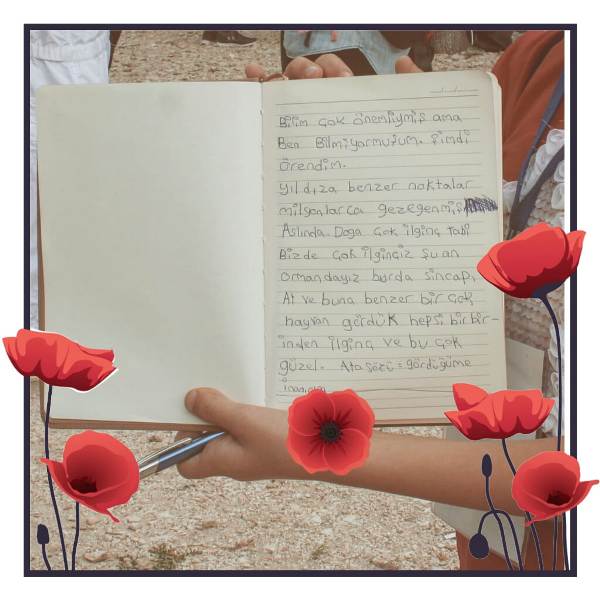 Bilim çok önemliymiş ama
Ben Bilmiyormuşum. Şimdi
örendim.
yıldıza benzer noktalar
milyonlarca gezegenmiş
Aslında Doğa çok ilginç tabi
Bizde çok ilginciz şu an
ormandayız burda sincap,
At ve buna benzer bir çok
hayvan gördük hepsi birbir-
inden ilginç ve bu çok
güzel. Ata sözü: gördüğüme
inanırım